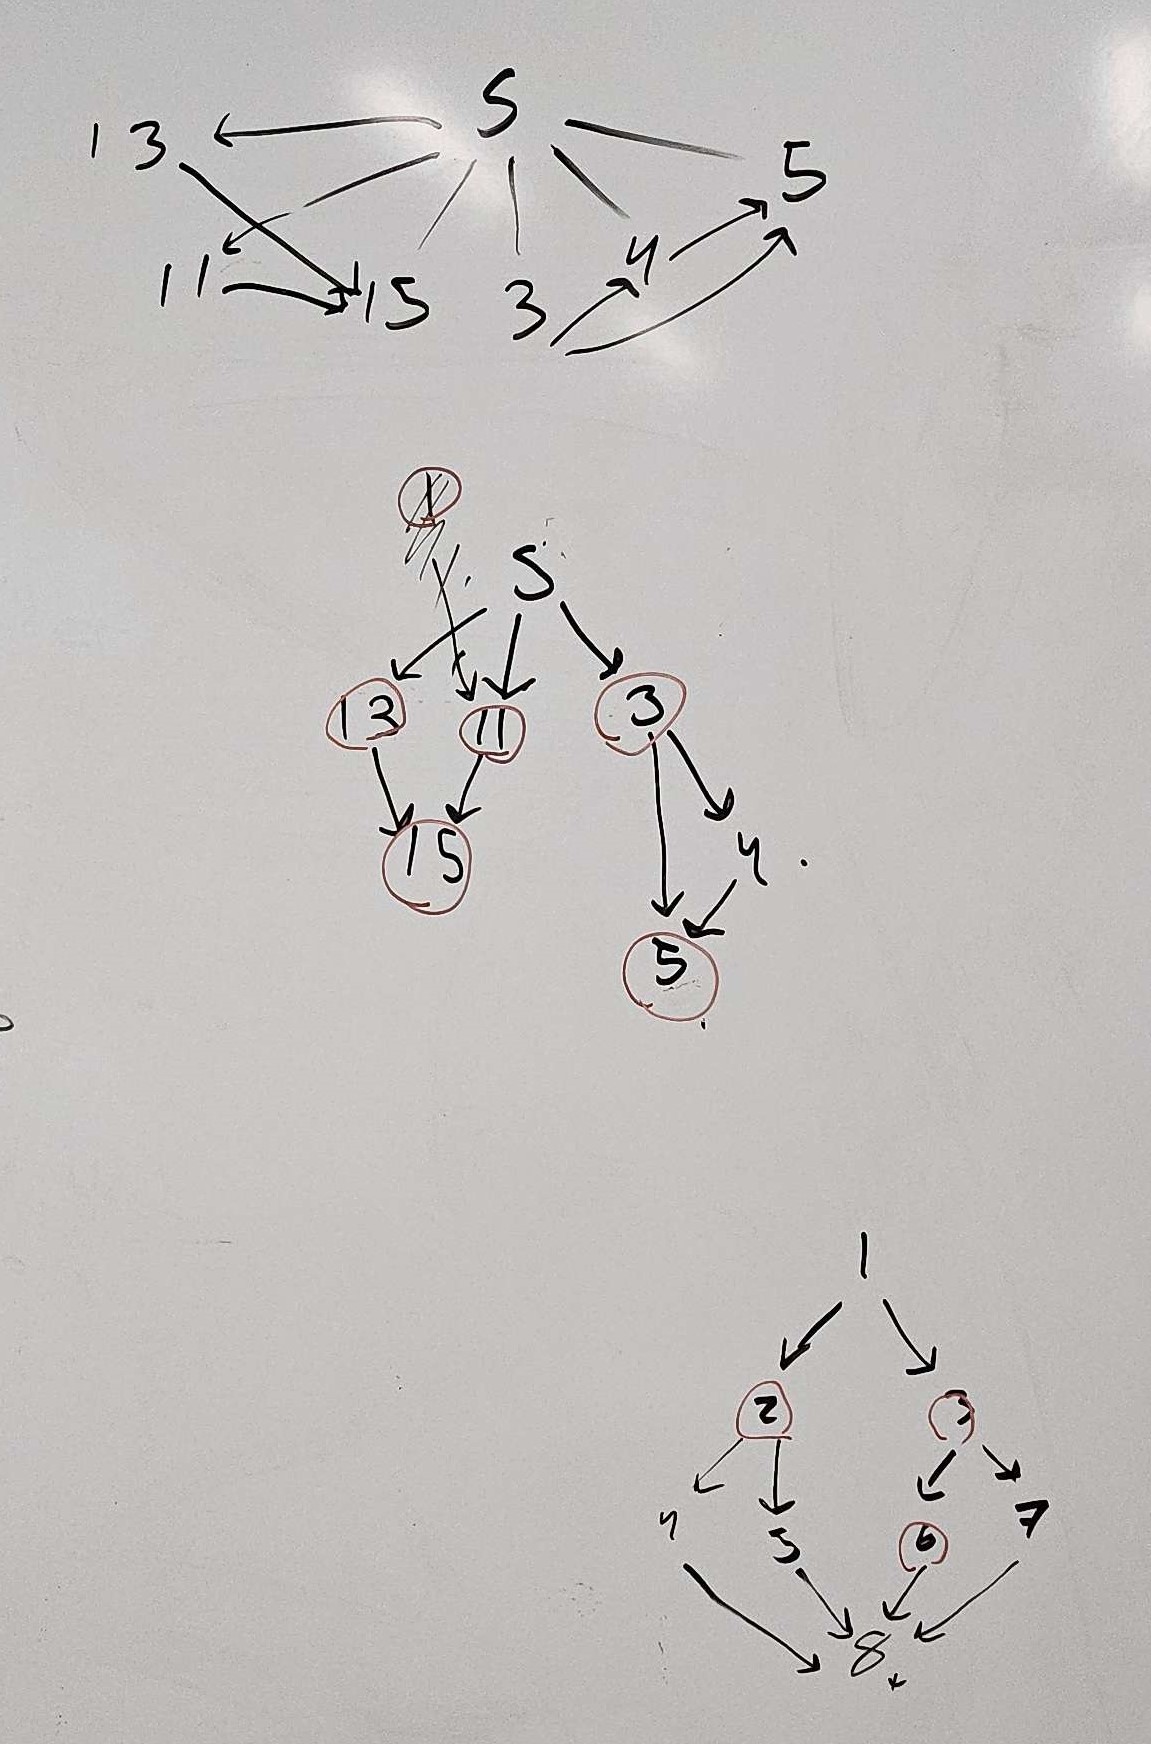 S
13 5
4
11 15 3
1
S
13 11 3
15 4
5
1
2 3
4 5 6 7
8